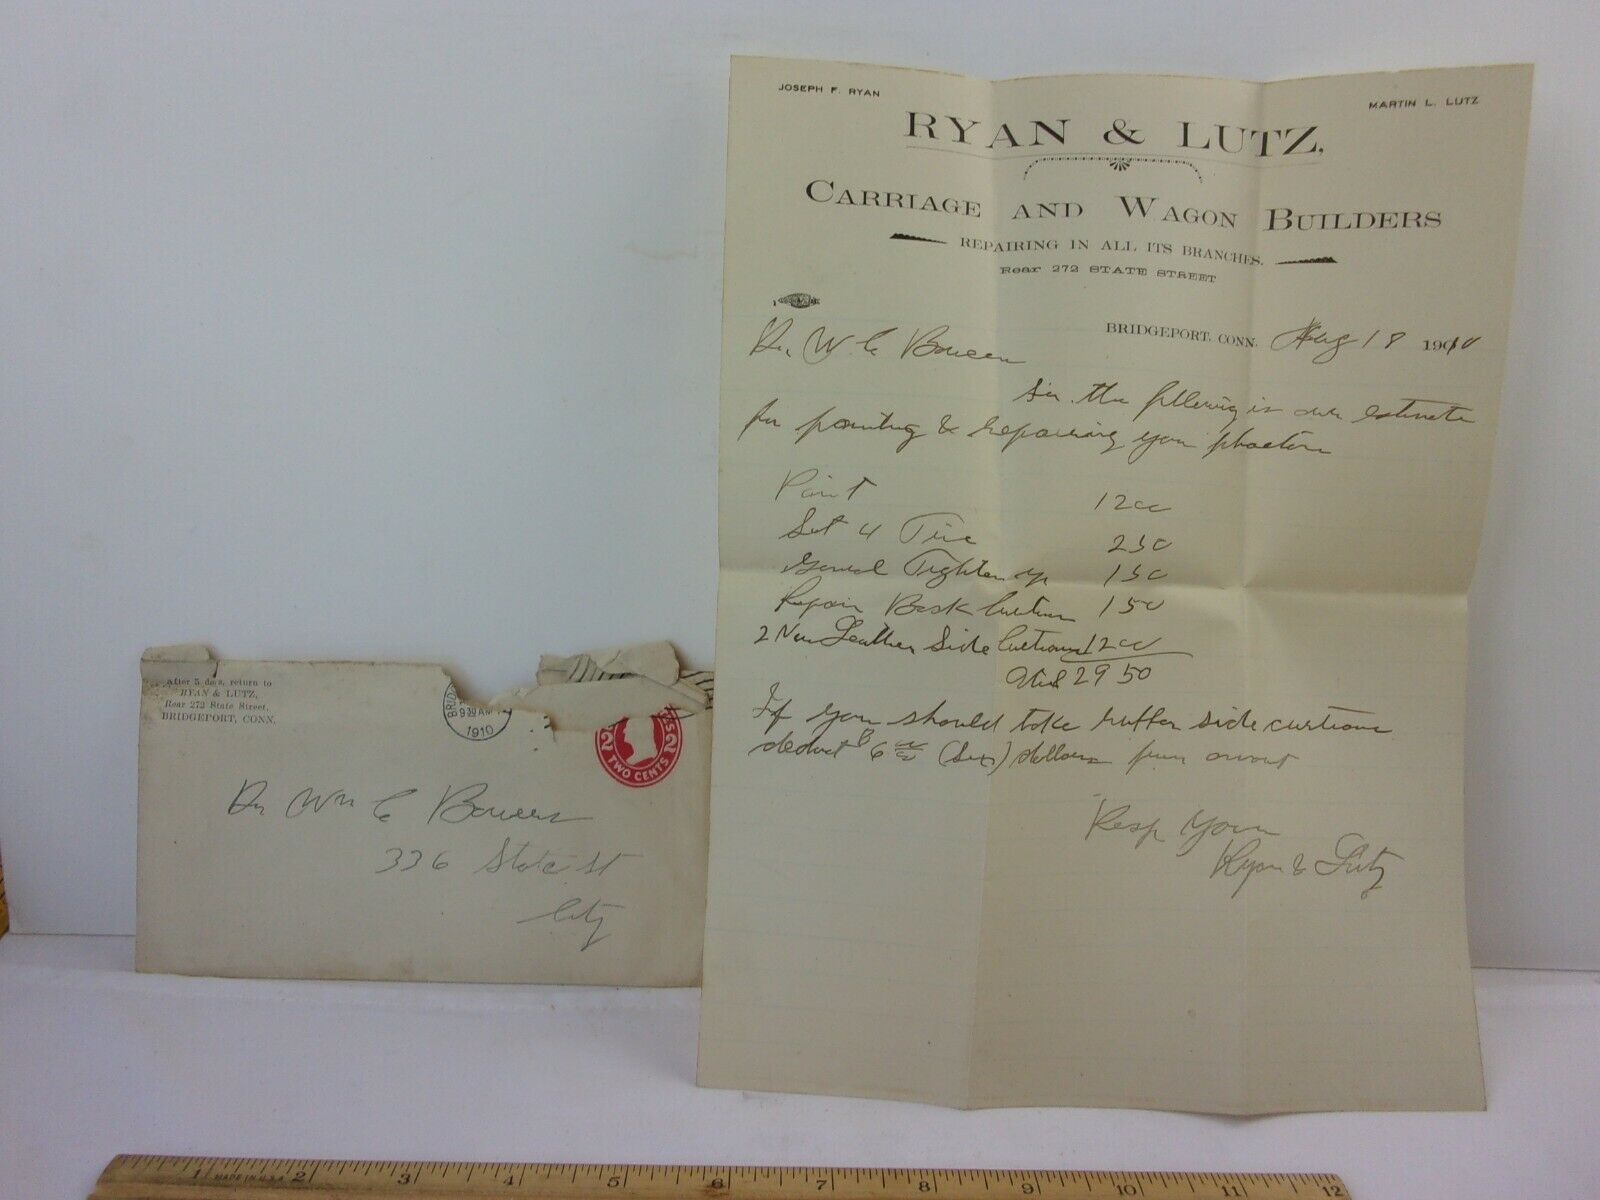 JOSEPH F. RYAN
MARTIN L. LUTZ
RYAN & LUTZ,
CARRIAGE AND WAGON BUILDERS
REPAIRING IN ALL ITS BRANCHES.
Rear 272 STATE STREET
BRIDGEPORT, CONN. Aug 18 1910
Dr. W C Bowers
Sir. the following is our estimate
for painting & repairing your phaeton
Paint 12 00
Set 4 Tire 2 50
General Tighten up 1 50
Repair Back Curtain 1 50
2 New Leather Side Curtains 12 00
29 50
If you should take rubber side curtains
deduct 6 00 (six) dollars from amount
Resp Yours
Ryan & Lutz
After 5 days, return to
RYAN & LUTZ,
Rear 272 State Street,
BRIDGEPORT, CONN.
9 30 AM
1910
TWO CENTS
2 2
Dr Wm C Bowers
336 State St
City
1 2 3 4 5 6 7 8 9 10 11 12
MADE IN U.S.A.